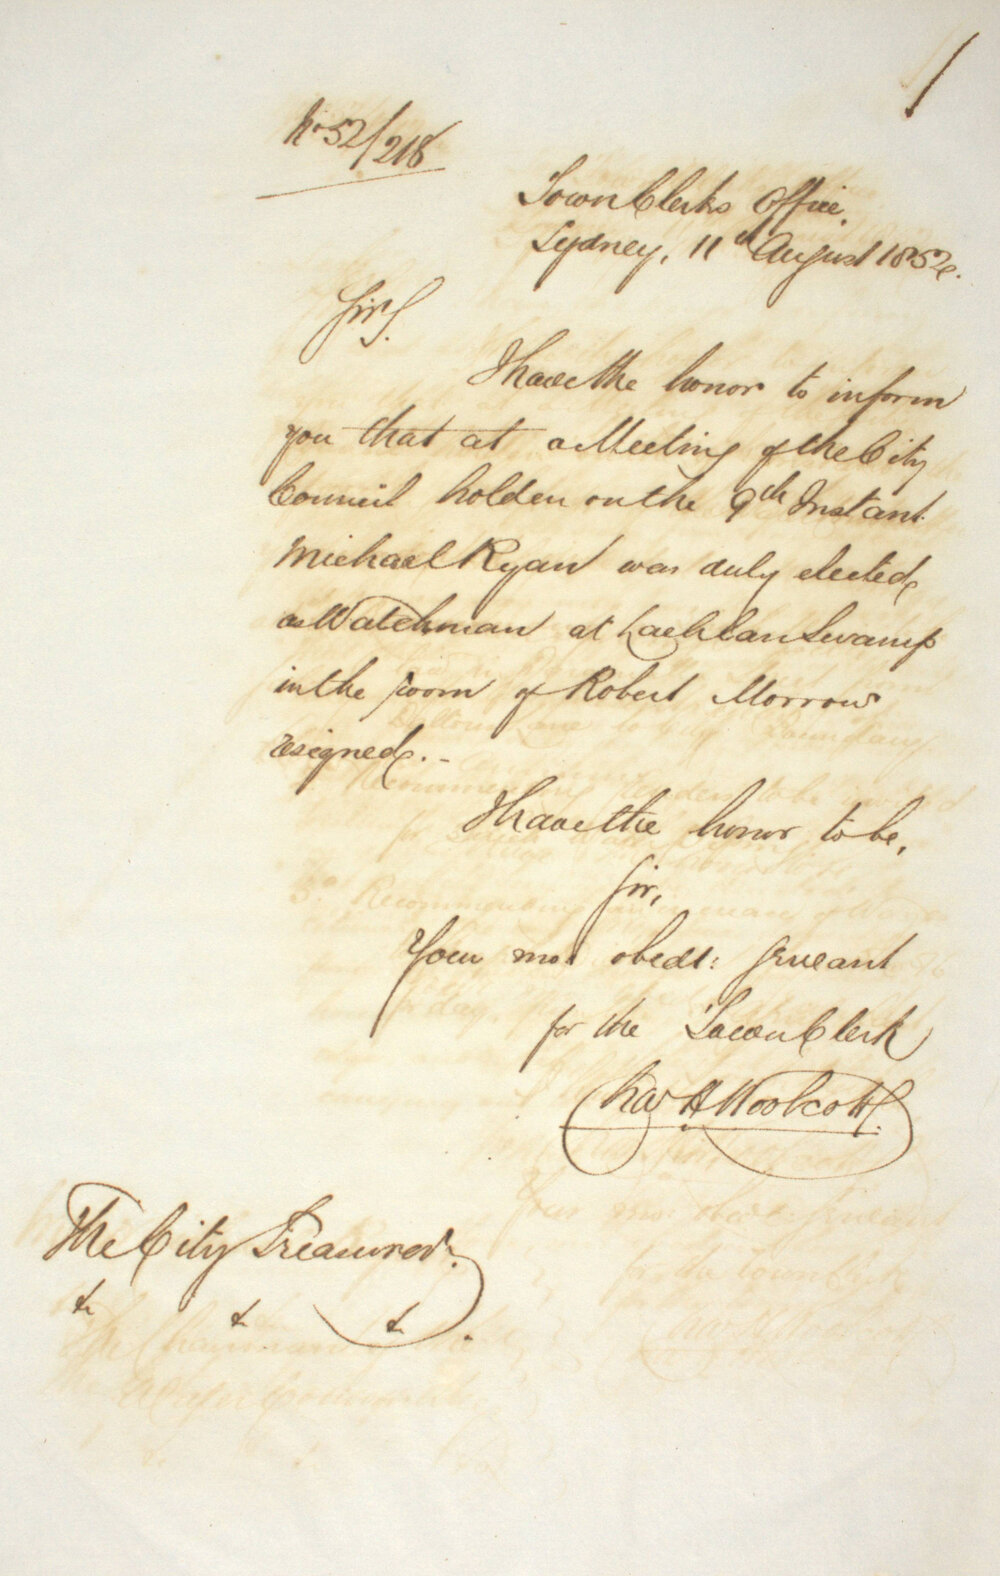 1
No 52/218
Town Clerks Office,
Sydney, 11th August 1852.
Sir,
I have the honor to inform
you that at a Meeting of the City
Council holden on the 9th Instant
Michael Ryan was duly elected
as Watchman at Lachlan Swamp
in the room of Robert Morrow
resigned. -
I have the honor to be,
Sir,
Your mo: obedt: servant
for the Town Clerk
Chas H Woolcott.
The City Treasurer.
&c &c &c.